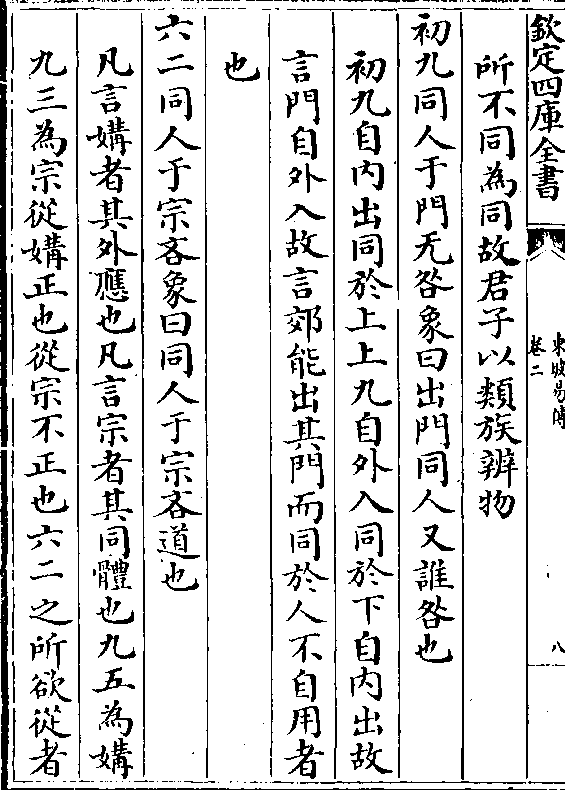 欽定四庫全書
東坡易傳
卷二
八
所不同為同故君子以類族辨物
初九同人于門无咎象曰出門同人又誰咎也
初九自内出同於上上九自外入同於下自内出故
言門自外入故言郊能出其門而同於人不自用者
也
六二同人于宗吝象曰同人于宗吝道也
凡言媾者其外應也凡言宗者其同體也九五為媾
九三為宗從媾正也從宗不正也六二之所欲從者